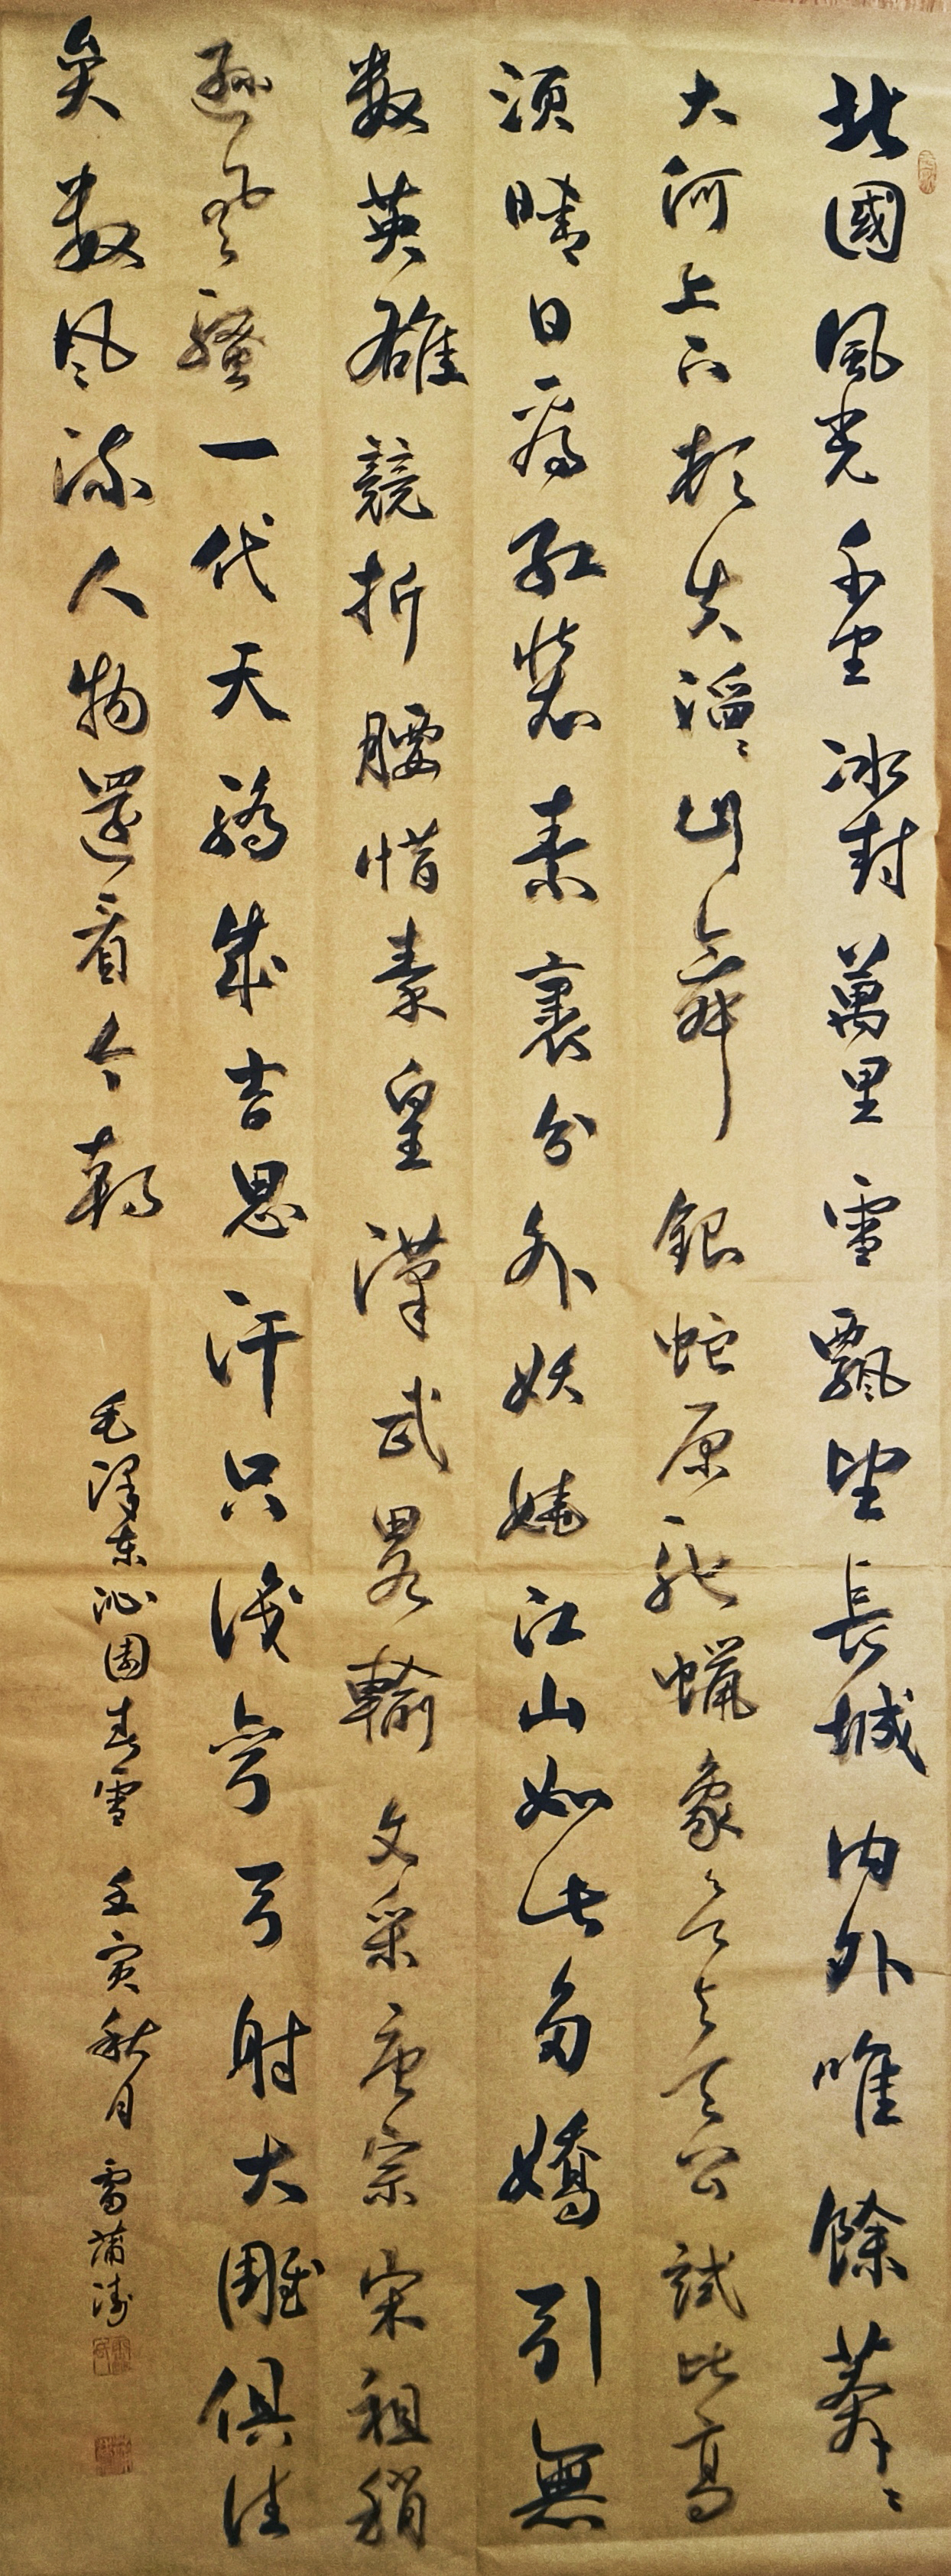 北國風光千里冰封萬里雪飄望長城内外唯餘莽〻
大河上下頓失滔〻山舞銀蛇原馳蠟象欲与天公試比高
須晴日看紅裝素裹分外妖嬈江山如此多嬌引無
数英雄競折腰惜秦皇漢武畧輸文采唐宗宋祖稍
遜風騷一代天驕成吉思汗只識彎弓射大雕俱往
矣数风流人物還看今朝
毛澤东沁園春雪 壬寅秋月 雷蒲涛